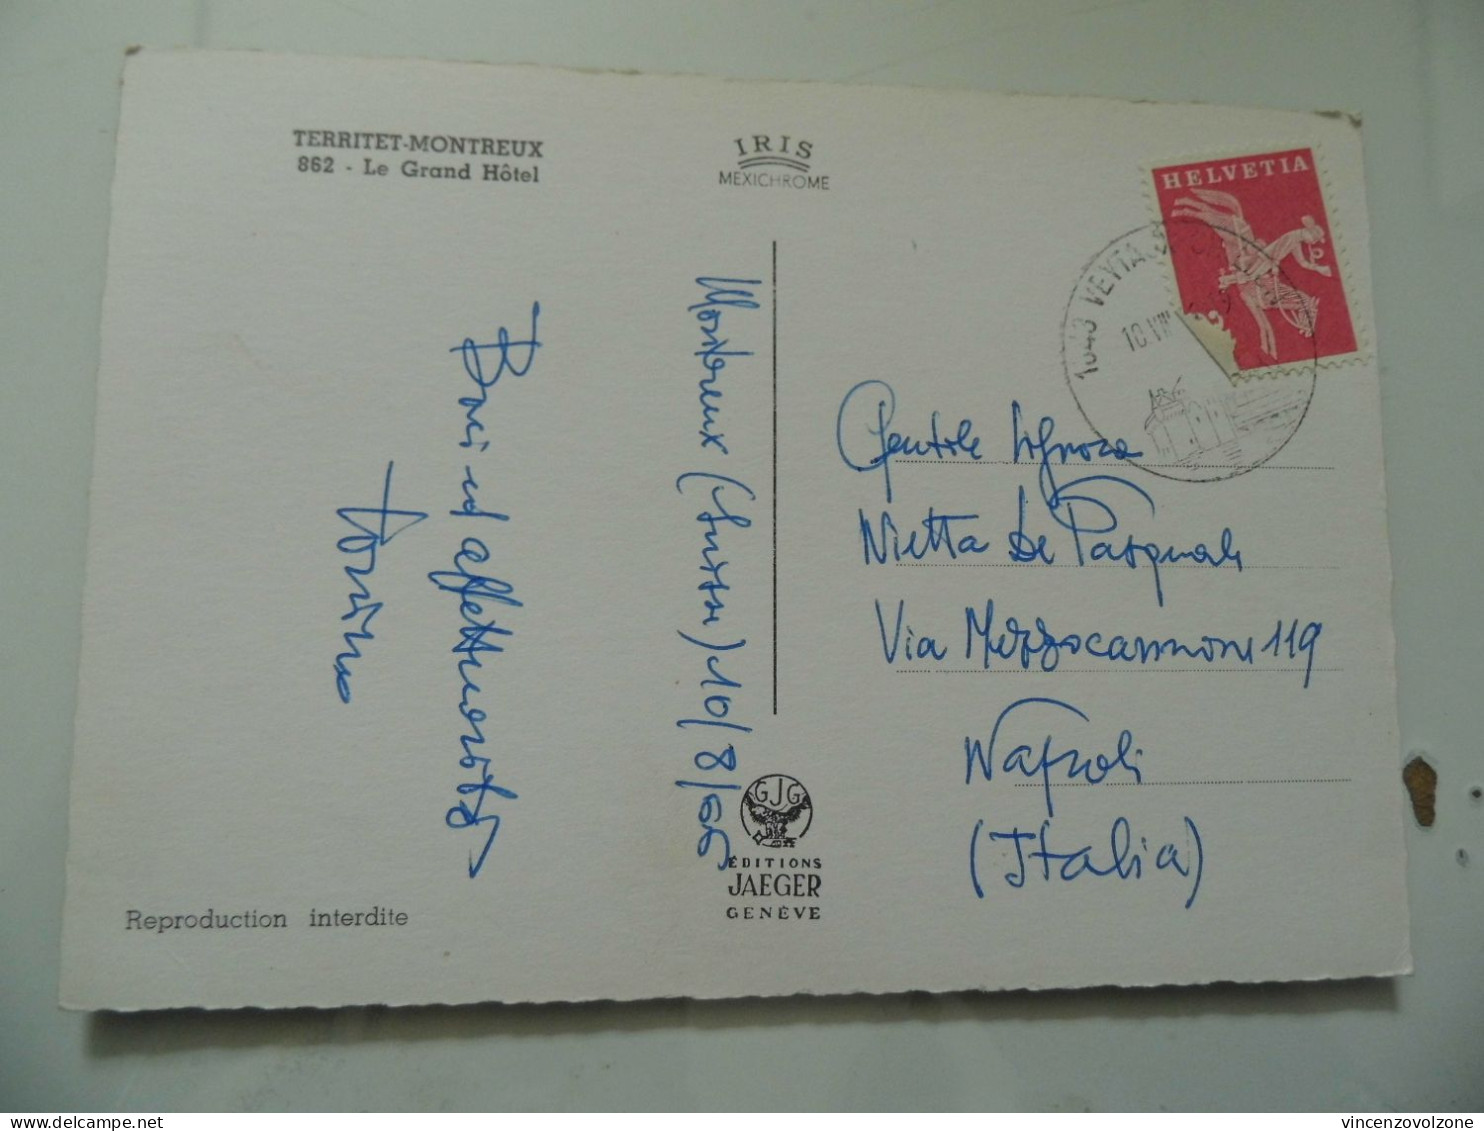 TERRITET-MONTREUX
862 - Le Grand Hôtel
IRIS
MEXICHROME
HELVETIA
1843 VEYTA
10 VIII
Montreux (Suisse) 10/8/66
Baci ed affettuosità
Tonino
Gentile Signora
Nietta De Pasquale
Via Mezzocannone 119
Napoli
(Italia)
GJG
ÉDITIONS
JAEGER
GENÈVE
Reproduction interdite
vincenzovolzone